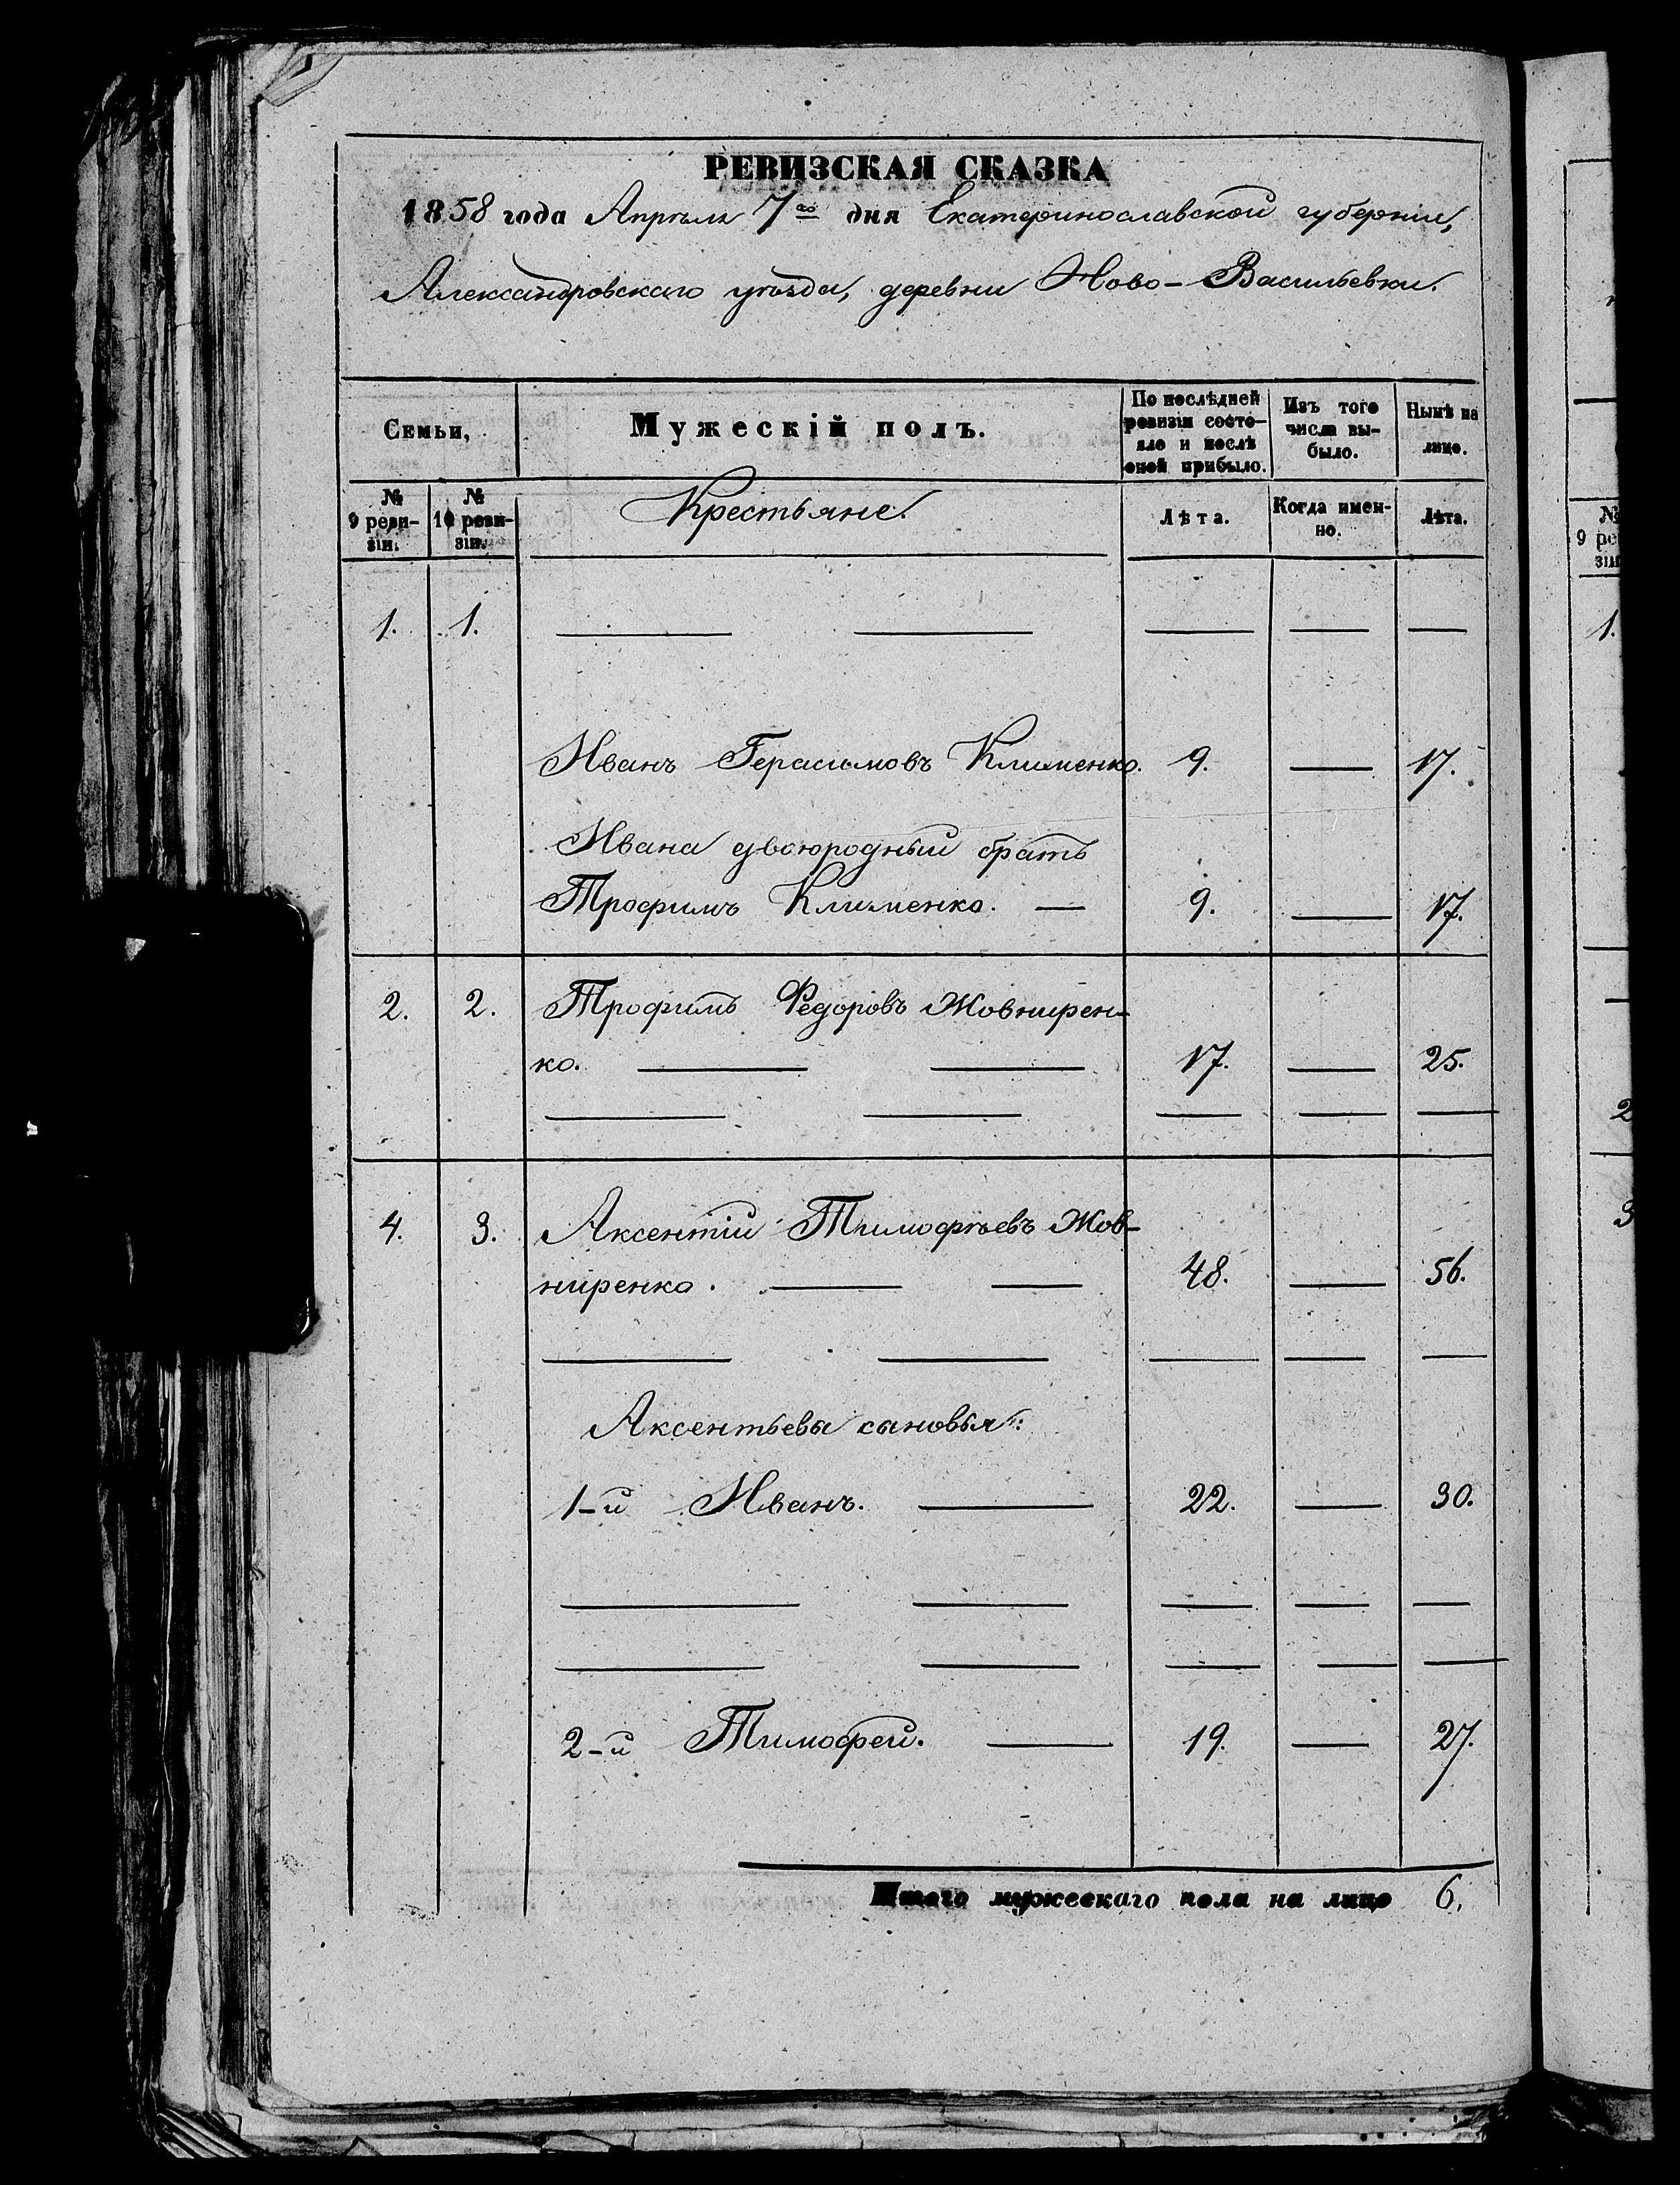 РЕВИЗСКАЯ СКАЗКА
1858 года Апрѣля 7го дня Екатеринославской губерніи,
Александровскаго уѣзда, деревни Ново-Васильевки.
Семьи, Мужескій полъ. По послѣдней ревизіи состояло и послѣ оной прибыло. Изъ того числа выбыло. Нынѣ на лицо.
№ 9 ревизіи. № 10 ревизіи. Крестьяне. Лѣта. Когда именно. Лѣта.
1. 1. — — — — —
Иванъ Герасимовъ Клименко. 9. — 17.
Ивана двоюродный братъ
Трофимъ Клименко. — 9. — 17.
2. 2. Трофимъ Федоровъ Жовнирен-
ко. — — 17. — 25.
— — — — —
4. 3. Аксентій Тимофѣевъ Жов-
ниренко. — — 48. — 56.
— — — — —
Аксентьевы сыновья:
1-й Иванъ. — 22. — 30.
— — — — —
— — — — —
2-й Тимофей. — 19. — 27.
Итого мужескаго пола на лицо 6.
№
9 ре
зіи
1.
2
3